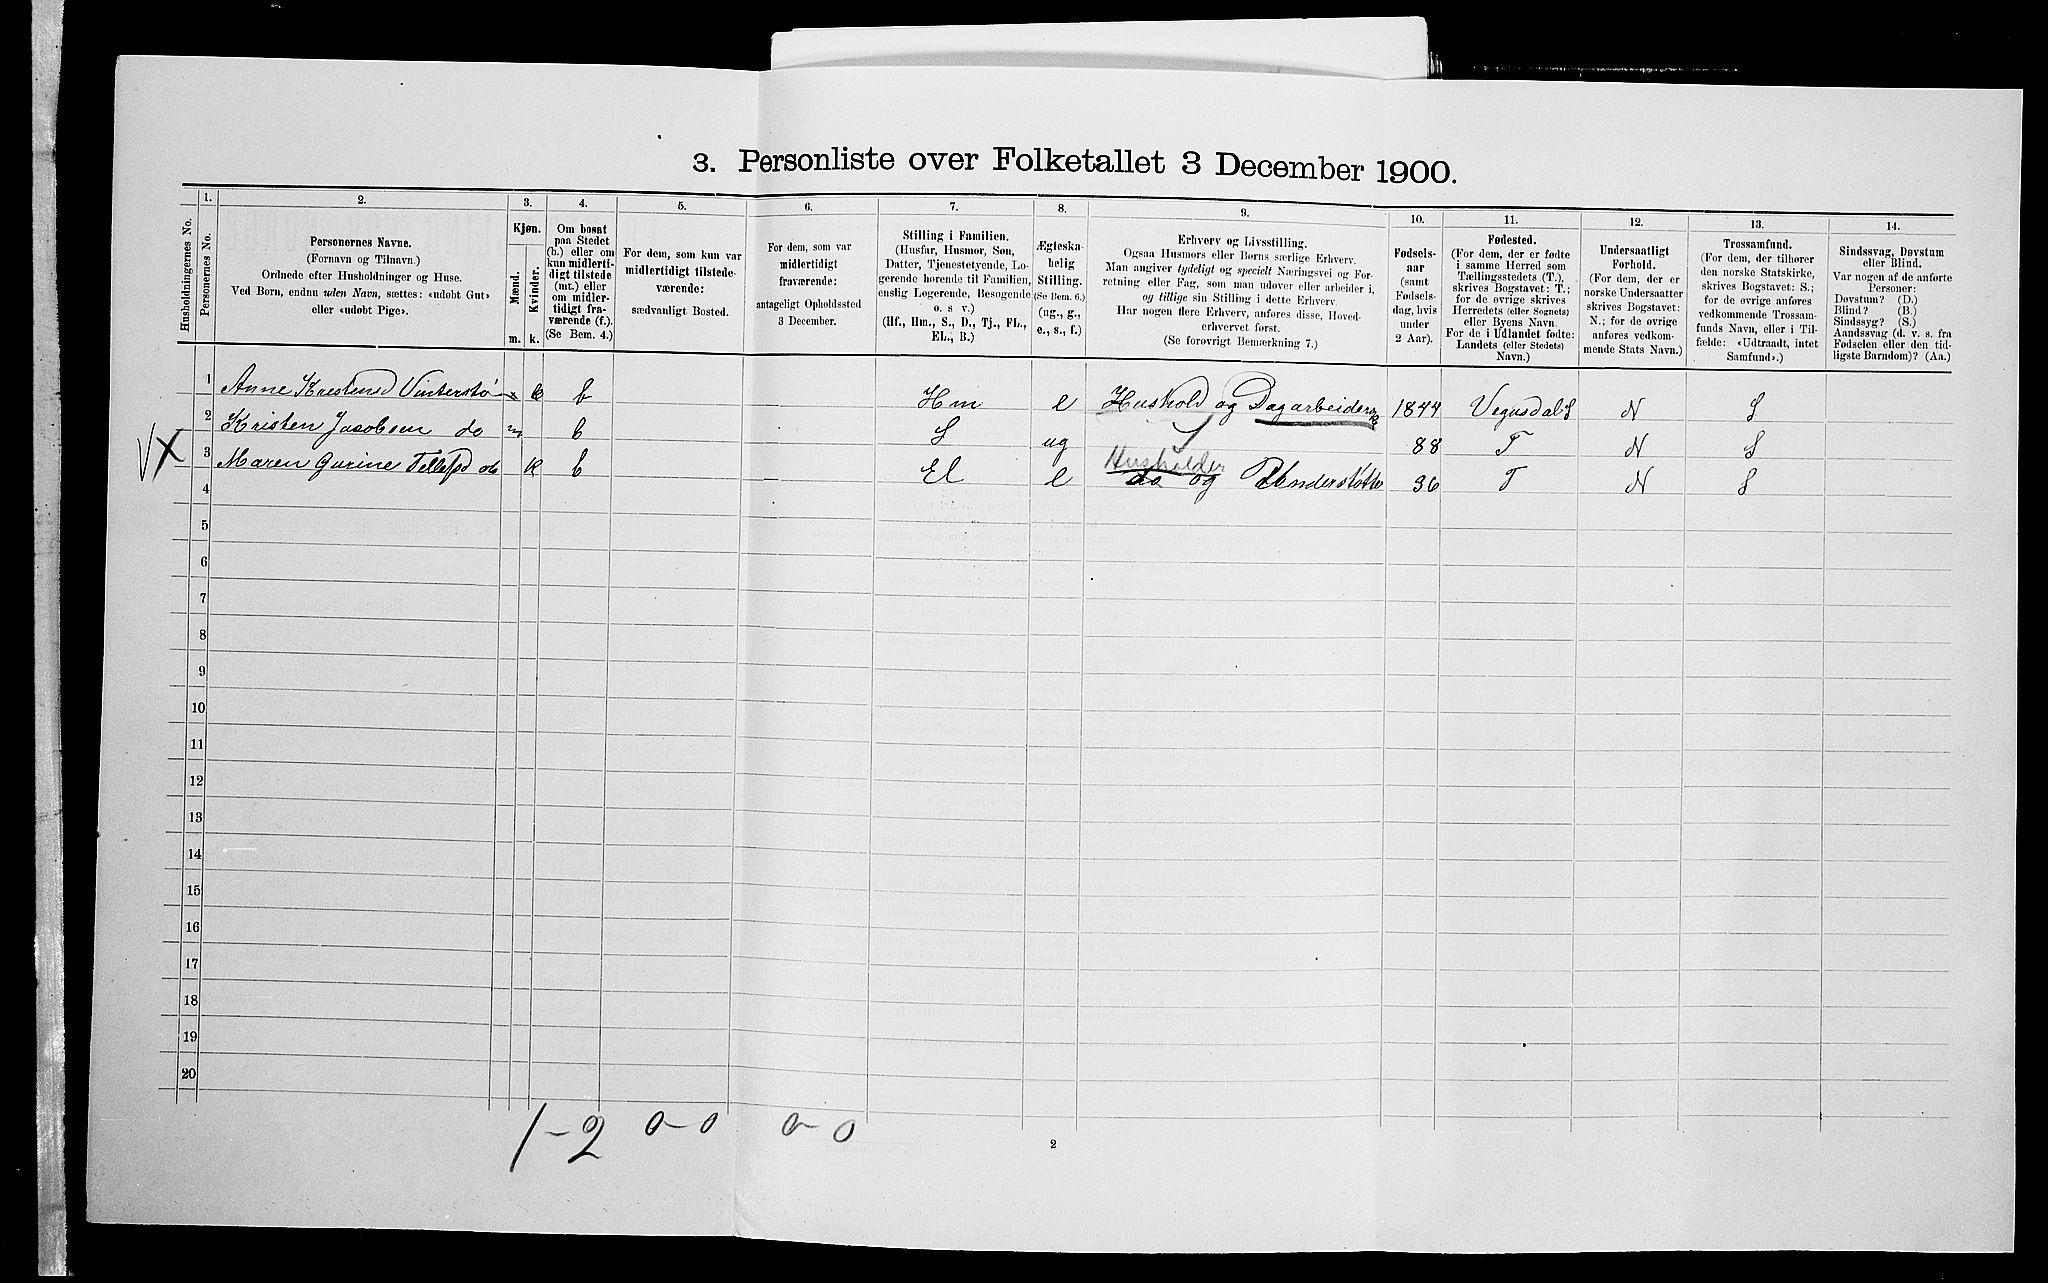 3. Personliste over Folketallet 3 December 1900.
Husholdningernes No.
1.
Personernes No.
2.
Personernes Navne.
(Fornavn og Tilnavn.)
Ordnede efter Husholdninger og Huse.
Ved Børn, endnu uden Navn, sættes: «udobt Gut»
eller «udobt Pige».
3.
Kjøn.
Mænd.
Kvinder.
m.
k.
4.
Om bosat
paa Stedet
(b.) eller om
kun midlerti-
digt tilstede
(mt.) eller
om midler-
tidigt fra-
værende (f.).
(Se Bem. 4.)
5.
For dem, som kun var
midlertidigt tilstede-
værende:
sædvanligt Bosted.
6.
For dem, som var
midlertidigt
fraværende:
antageligt Opholdssted
3 December.
7.
Stilling i Familien.
(Husfar, Husmor, Søn,
Datter, Tjenestetyende, Lo-
gerende hørende til Familien,
enslig Logerende, Besøgende
o. s v.)
(Hf., Hm., S., D., Tj., FL.,
EL., B.)
8.
Ægteska-
belig
Stilling.
(Se Bem. 6.)
(ug., g.,
e., s., f.)
9.
Erhverv og Livsstilling.
Ogsaa Husmors eller Børns særlige Erhverv.
Man angiver tydeligt og specielt Næringsvei og For-
retning eller Fag, som man udøver eller arbeider i,
og tillige sin Stilling i dette Erhverv.
Har nogen flere Erhverv, anføres disse, Hoved-
erhvervet først.
(Se forøvrigt Bemærkning 7.)
10.
Fødsels-
aar
(samt
Fødsels-
dag, hvis
under
2 Aar).
11.
Fødested.
(For dem, der er fødte
i samme Herred som
Tællingsstedets (T.),
skrives Bogstavet: T.;
for de øvrige skrives
Herredets (eller Sognets)
eller Byens Navn.
For de i Udlandet fødte:
Landets (eller Stedets)
Navn.)
12.
Undersaatligt
Forhold.
(For dem, der er
norske Undersaatter
skrives Bogstavet:
N.; for de øvrige
anføres vedkom-
mende Stats Navn.)
13.
Trossamfund.
(For dem, der tilhører
den norske Statskirke,
skrives Bogstavet: S.;
for de øvrige anføres
vedkommende Trossam-
funds Navn, eller i Til-
fælde: «Udtraadt, intet
Samfund».)
14.
Sindssvag, Døvstum
eller Blind.
Var nogen af de anførte
Personer:
Døvstum? (D.)
Blind? (B.)
Sindssyg? (S.)
Aandssvag (d. v. s. fra
Fødselen eller den tid-
ligste Barndom)? (Aa.)
1 Anne Kristensd Vinterstø k b Hm e Hushold og Dagarbeider 1844 Vegusdal S N S
2 Kristen Jacobsen do m b S ug 88 T N S
3 Maren Gurine Tellefsd do k b El e Husholder do og Understøtte 36 T N S
4
5
6
7
8
9
10
11
12
13
14
15
16
17
18
19
20
1-2 0-0 0-0
2